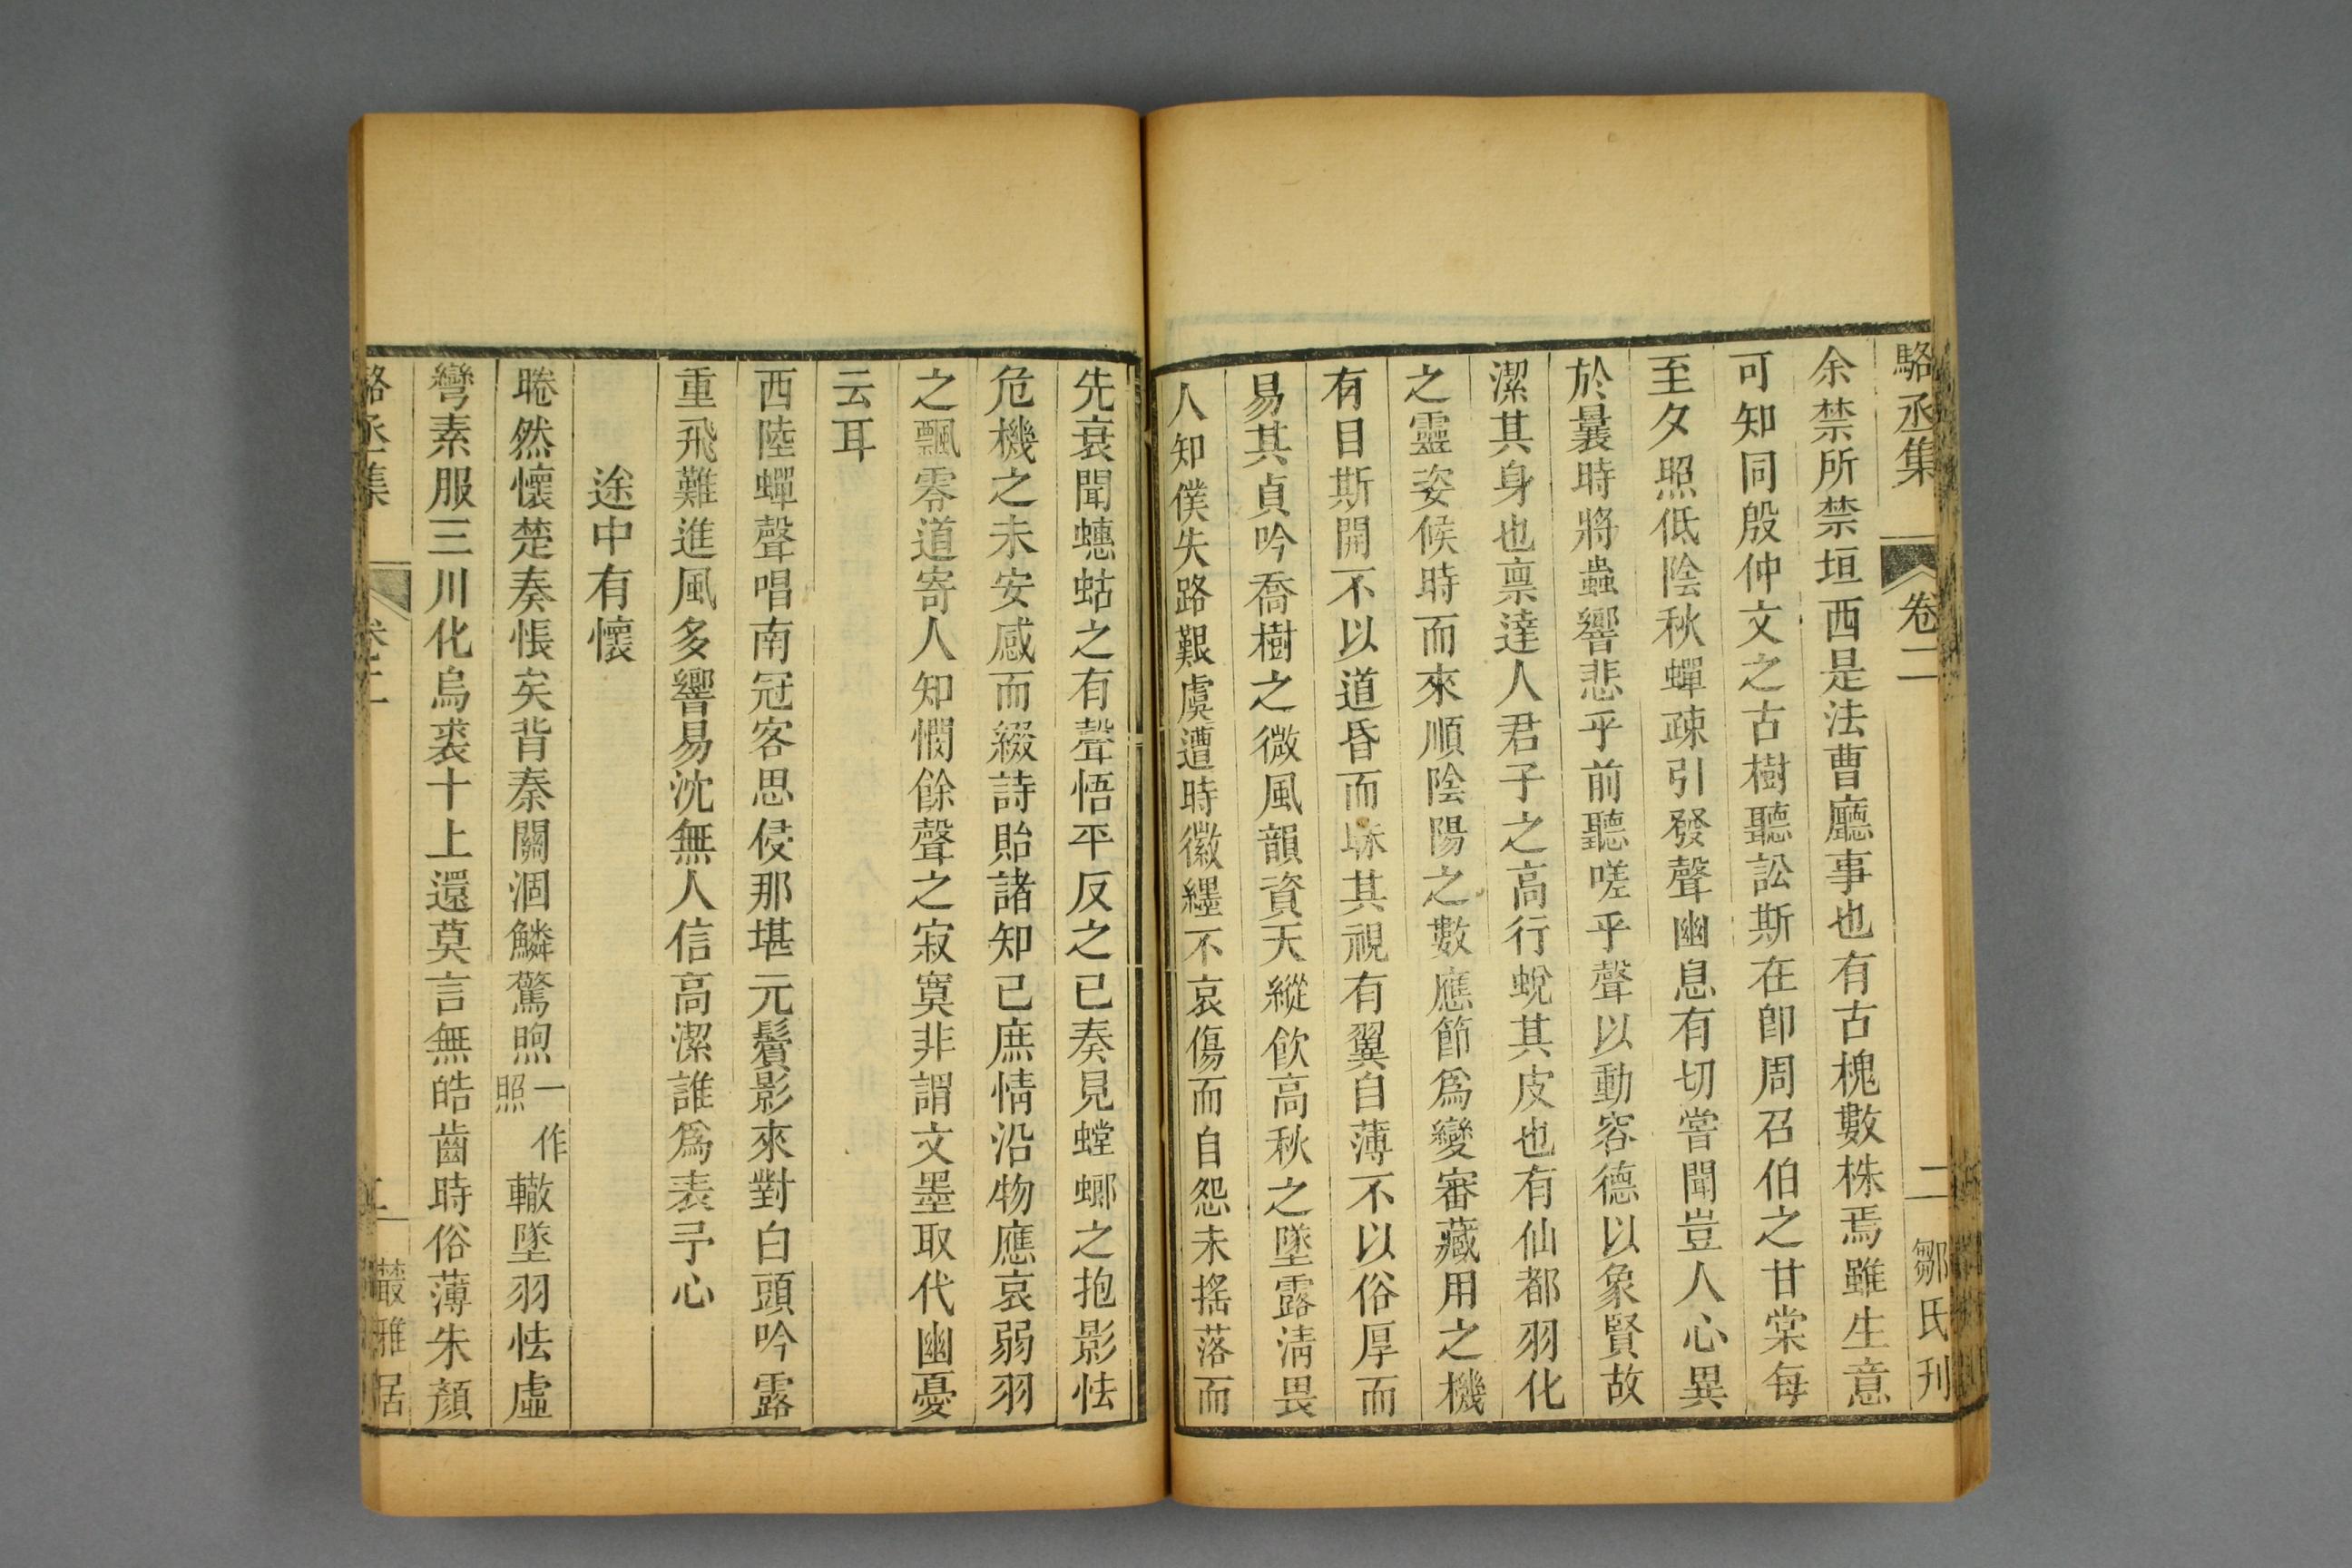 駱丞集 卷二 二 鄒氏刊
余禁所禁垣西是法曹廳事也有古槐數株焉雖生意
可知同殷仲文之古樹聽訟斯在卽周召伯之甘棠每
至夕照低陰秋蟬疎引發聲幽息有切嘗聞豈人心異
於曩時將蟲響悲乎前聽嗟乎聲以動容德以象賢故
潔其身也禀達人君子之高行蛻其皮也有仙都羽化
之靈姿候時而來順陰陽之數應節爲變審藏用之機
有目斯開不以道昏而昧其視有翼自薄不以俗厚而
易其貞吟喬樹之微風韻資天縱飮高秋之墜露淸畏
人知僕失路艱虞遭時徽纆不哀傷而自怨未搖落而
先衰聞蟪蛄之有聲悟平反之已奏見螳螂之抱影怯
危機之未安感而綴詩貽諸知己庶情沿物應哀弱羽
之飄零道寄人知憫餘聲之寂寞非謂文墨取代幽憂
云耳
西陸蟬聲唱南冠客思侵那堪元鬢影來對白頭吟露
重飛難進風多響易沈無人信高潔誰爲表予心
途中有懷
睠然懷楚奏悵矣背秦關涸鱗驚煦一作照轍墜羽怯虛
彎素服三川化烏裘十上還莫言無皓齒時俗薄朱顏
駱丞集 卷二 叢雅居